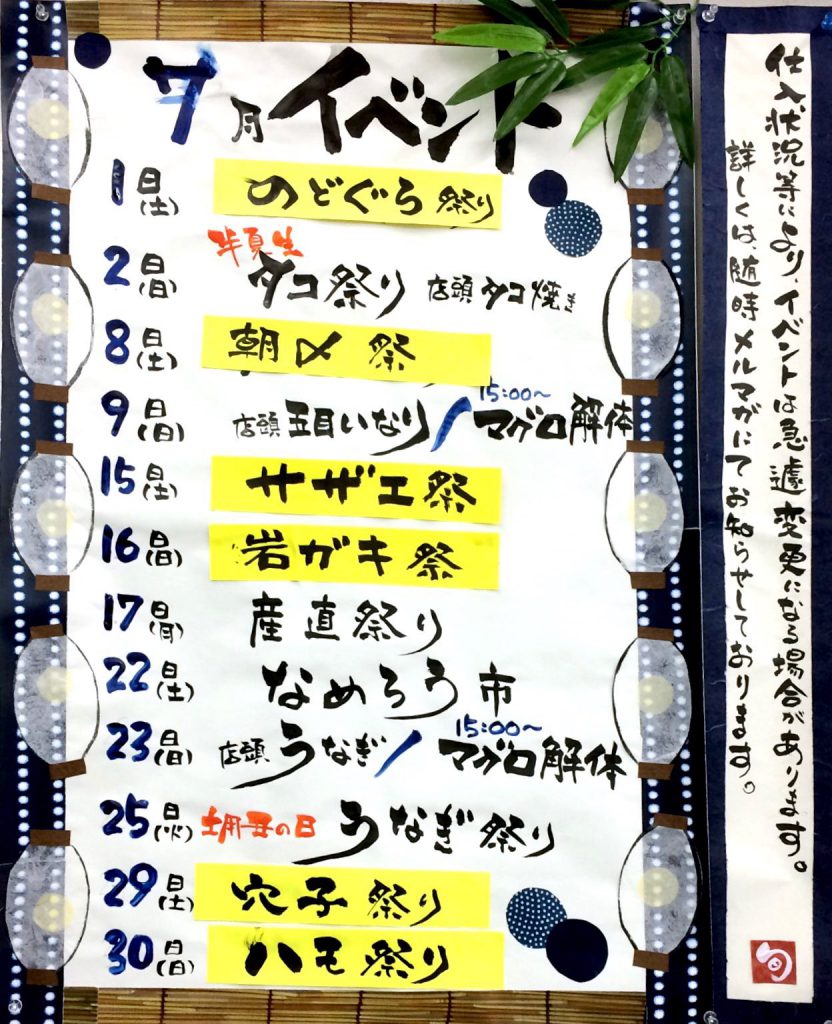 7月イベント
1日(土) のどぐろ祭り
半夏生
2日(日) タコ祭り 店頭タコ焼き
8日(土) 朝〆祭
15:00〜
9日(日) 店頭五目いなり/マグロ解体
15日(土) サザエ祭
16日(日) 岩ガキ祭
17日(月) 産直祭り
22日(土) なめろう市
15:00〜
23日(日) 店頭うなぎ/マグロ解体
25日(火) 土用丑の日 うなぎ祭り
29日(土) 穴子祭り
30日(日) ハモ祭り
仕入状況等により、イベントは急遽変更になる場合があります。
詳しくは、随時メルマガにてお知らせしております。